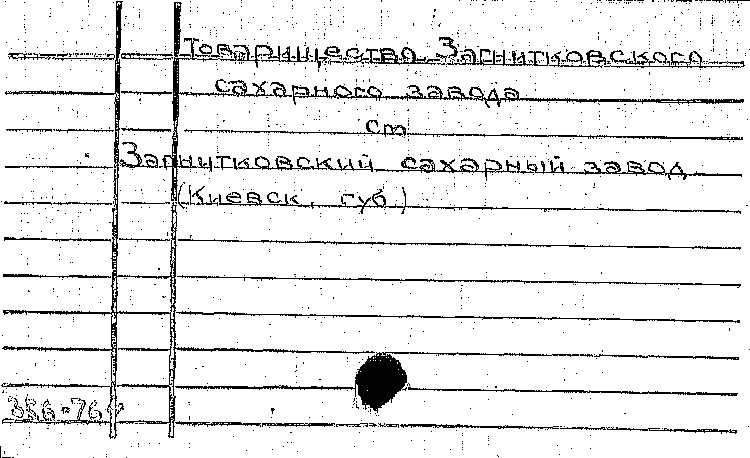 Товарищество Загнитковского
сахарного завода
см
Загнитковский сахарный завод
(Киевск. губ.)